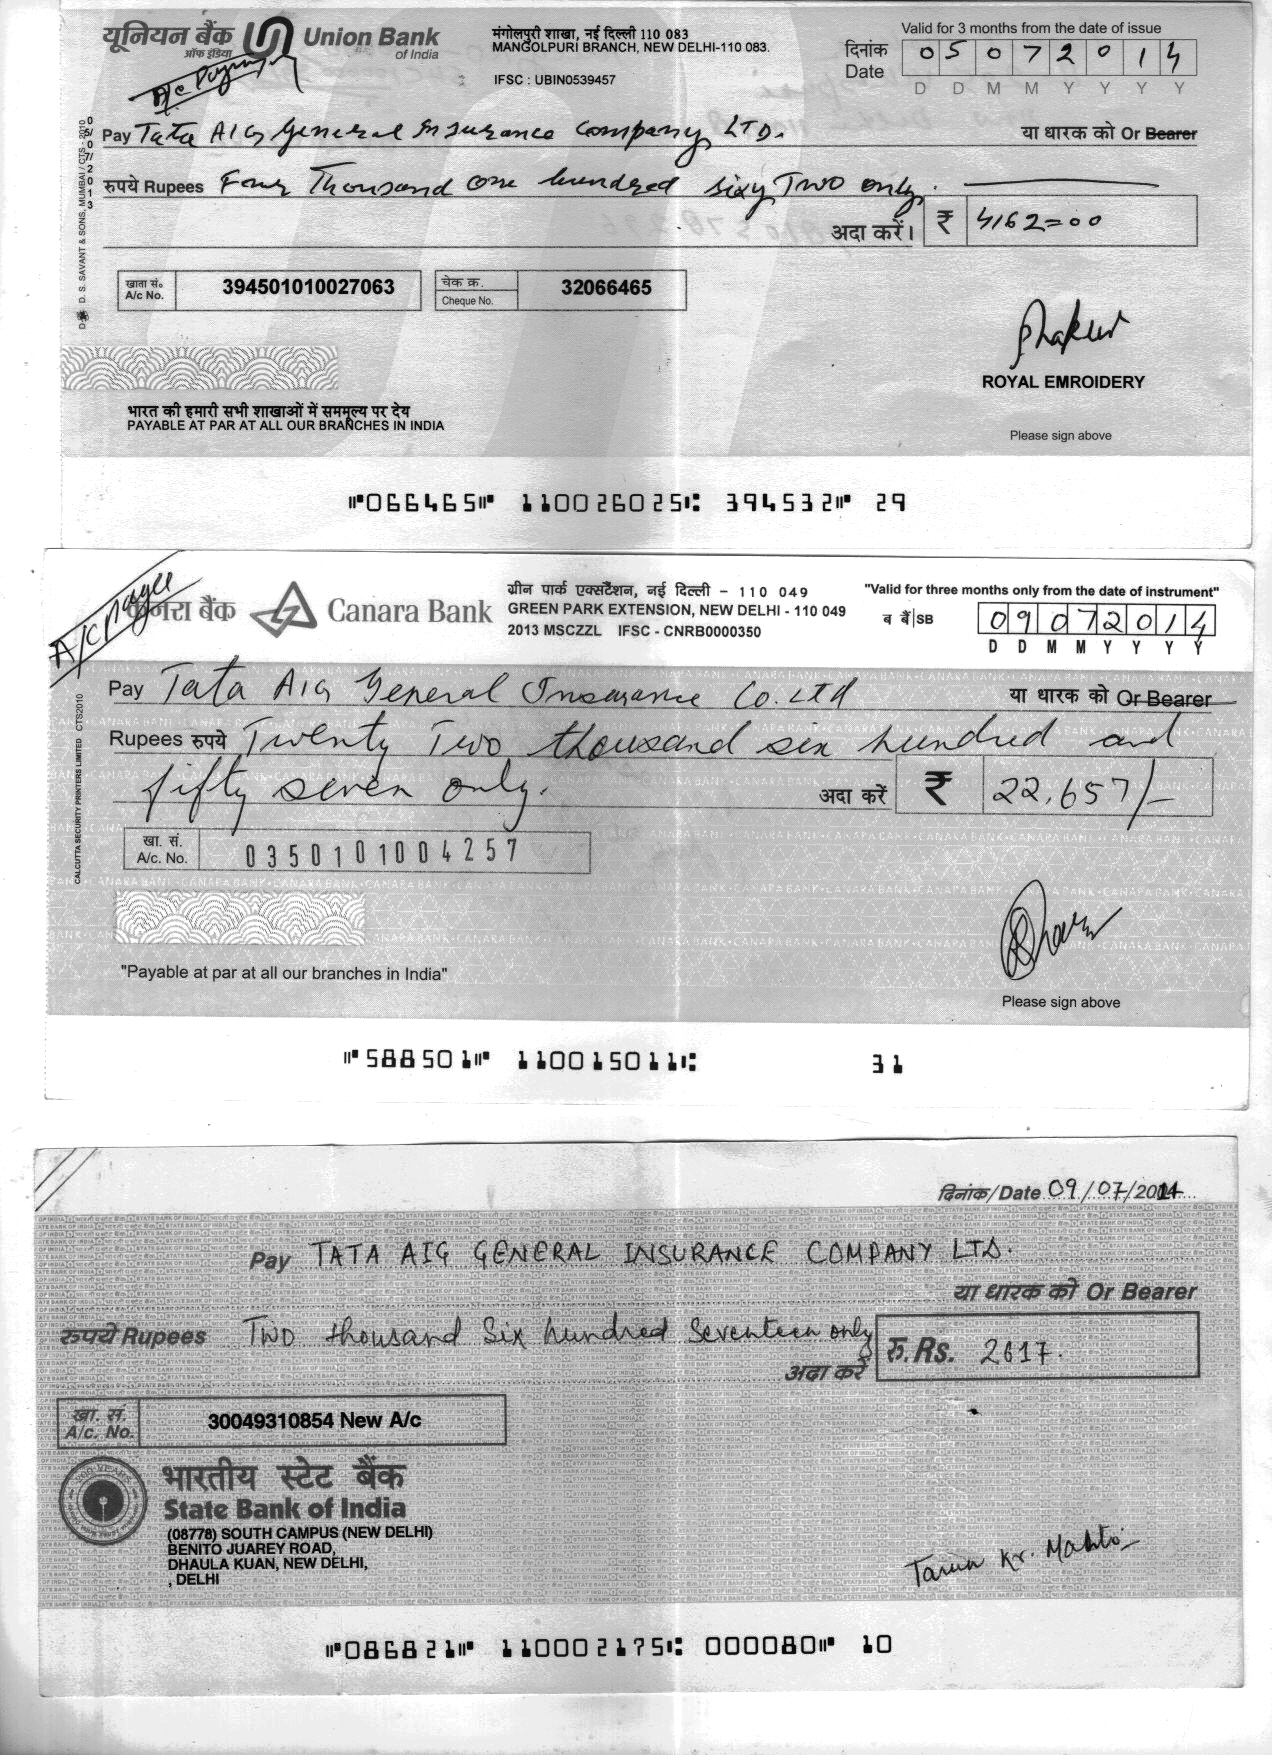 यूनियन बैंक
ऑफ इंडिया
Union Bank
of India
मंगोलपुरी शाखा, नई दिल्ली 110 083
MANGOLPURI BRANCH, NEW DELHI-110 083.
IFSC : UBIN0539457
Valid for 3 months from the date of issue
दिनांक
Date
0 5 0 7 2 0 1 4
D D M M Y Y Y Y
A/c Payee
Pay Tata AIG General Insurance Company LTD.
या धारक को Or Bearer
रुपये Rupees Four Thousand one hundred sixy Two only.
अदा करें। ₹ 4162=00
D. S. SAVANT & SONS, MUMBAI / CTS - 2010
खाता सं०
A/c No.
394501010027063
चेक क्र.
Cheque No.
32066465
ROYAL EMROIDERY
भारत की हमारी सभी शाखाओं में सममूल्य पर देय
PAYABLE AT PAR AT ALL OUR BRANCHES IN INDIA
Please sign above
⑈066465⑈ 110026025⑆ 394532⑈ 29
A/c payee
केनरा बैंक Canara Bank
ग्रीन पार्क एक्सटेंशन, नई दिल्ली - 110 049
GREEN PARK EXTENSION, NEW DELHI - 110 049
2013 MSCZZL IFSC - CNRB0000350
"Valid for three months only from the date of instrument"
ब बैं|SB
0 9 0 7 2 0 1 4
D D M M Y Y Y Y
Pay Tata AIG General Insurance Co. LTD
या धारक को Or Bearer
Rupees रुपये Twenty Two thousand six hundred and
fifty seven only.
अदा करें ₹ 22,657/-
CALCUTTA SECURITY PRINTERS LIMITED CTS2010
खा. सं.
A/c. No.
0350101004257
"Payable at par at all our branches in India"
Please sign above
⑈588501⑈ 110015011⑆ 31
दिनांक/Date 09/07/2014
Pay TATA AIG GENERAL INSURANCE COMPANY LTD.
या धारक को Or Bearer
रुपये Rupees Two thousand Six hundred Seventeen only
अदा करें रु.Rs. 2617.
खा. सं.
A/c. No.
30049310854 New A/c
भारतीय स्टेट बैंक
State Bank of India
(08778) SOUTH CAMPUS (NEW DELHI)
BENITO JUAREY ROAD,
DHAULA KUAN, NEW DELHI,
, DELHI
Tarun Kr. Mahto
⑈086821⑈ 110002175⑆ 000080⑈ 10